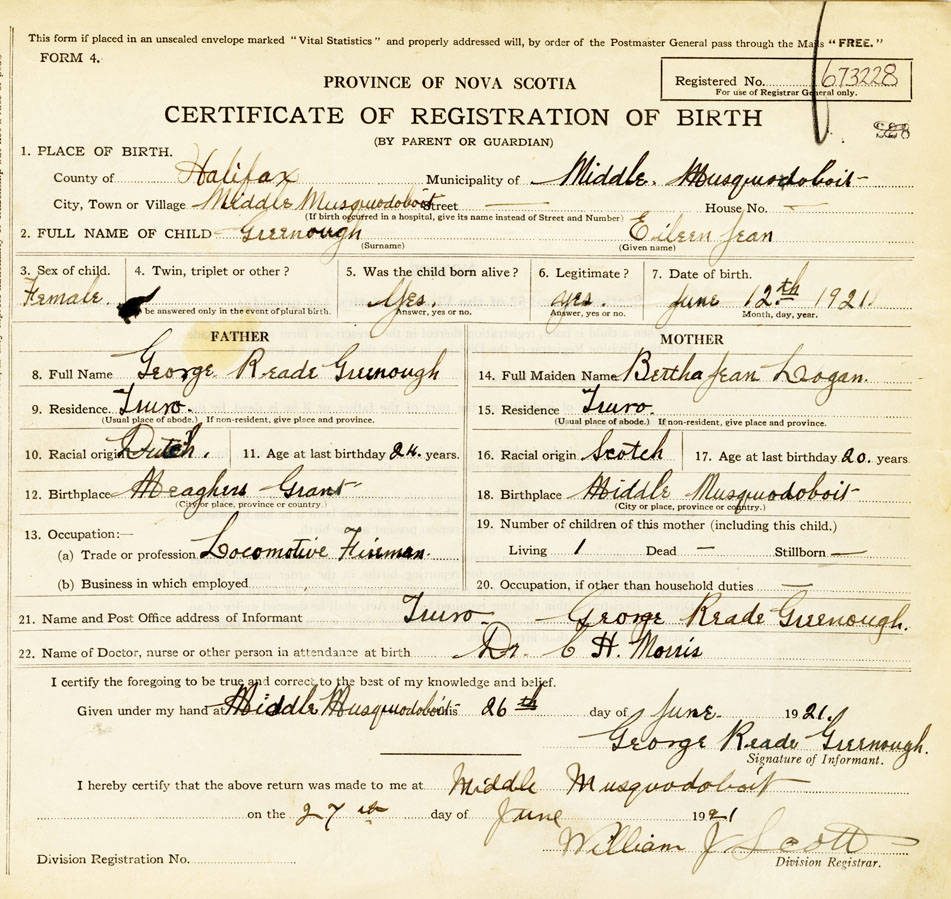 This form if placed in an unsealed envelope marked "Vital Statistics" and properly addressed will, by order of the Postmaster General pass through the Mails "FREE."
FORM 4.
PROVINCE OF NOVA SCOTIA
Registered No. 673228
For use of Registrar General only.
CERTIFICATE OF REGISTRATION OF BIRTH
(BY PARENT OR GUARDIAN)
1. PLACE OF BIRTH.
County of Halifax Municipality of Middle Musquodoboit
City, Town or Village Middle Musquodoboit Street — House No. —
(If birth occurred in a hospital, give its name instead of Street and Number)
2. FULL NAME OF CHILD Greenough Eileen Jean
(Surname) (Given name)
3. Sex of child. 4. Twin, triplet or other? 5. Was the child born alive? 6. Legitimate? 7. Date of birth.
Female. Yes. yes. June 12th 1921
be answered only in the event of plural birth. Answer, yes or no. Answer, yes or no. Month, day, year.
FATHER MOTHER
8. Full Name George Reade Greenough 14. Full Maiden Name Bertha Jean Logan.
9. Residence. Truro. 15. Residence Truro.
(Usual place of abode.) If non-resident, give place and province. (Usual place of abode.) If non-resident, give place and province.
10. Racial origin Dutch. 11. Age at last birthday 24. years. 16. Racial origin Scotch 17. Age at last birthday 20. years
12. Birthplace Meaghers Grant 18. Birthplace Middle Musquodoboit
(City or place, province or country.) (City or place, province or country.)
13. Occupation:— 19. Number of children of this mother (including this child.)
(a) Trade or profession Locomotive Fireman. Living 1 Dead — Stillborn —
(b) Business in which employed 20. Occupation, if other than household duties —
21. Name and Post Office address of Informant Truro. George Reade Greenough.
22. Name of Doctor, nurse or other person in attendance at birth Dr. C H. Morris
I certify the foregoing to be true and correct to the best of my knowledge and belief.
Given under my hand at Middle Musquodoboit this 26th day of June. 1921.
George Reade Greenough.
Signature of Informant.
I hereby certify that the above return was made to me at Middle Musquodoboit
on the 27th day of June 1921
William J Scott
Division Registration No. Division Registrar.